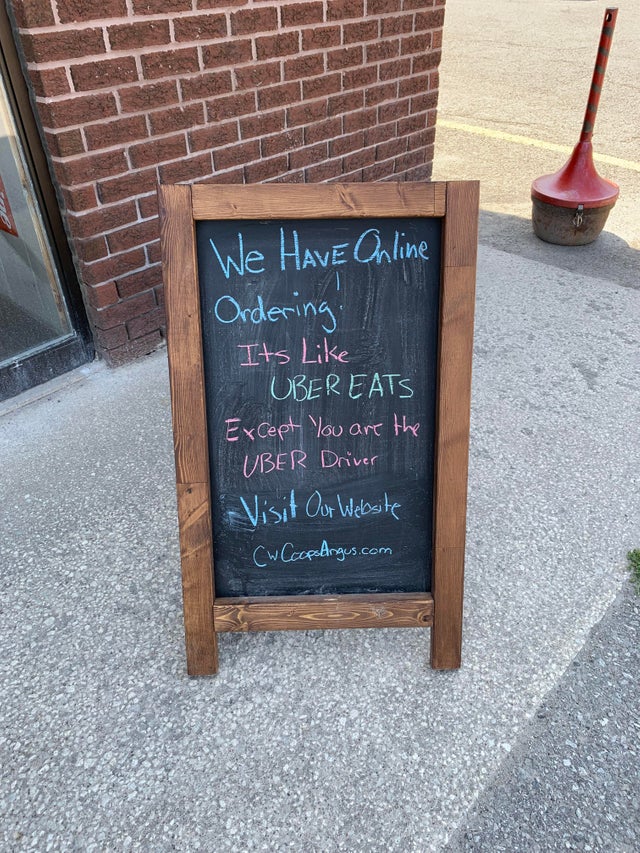 We HAVE Online
Ordering!
Its Like
UBER EATS
Except You are the
UBER Driver
-Visit Our Website
CWCoopsAngus.com